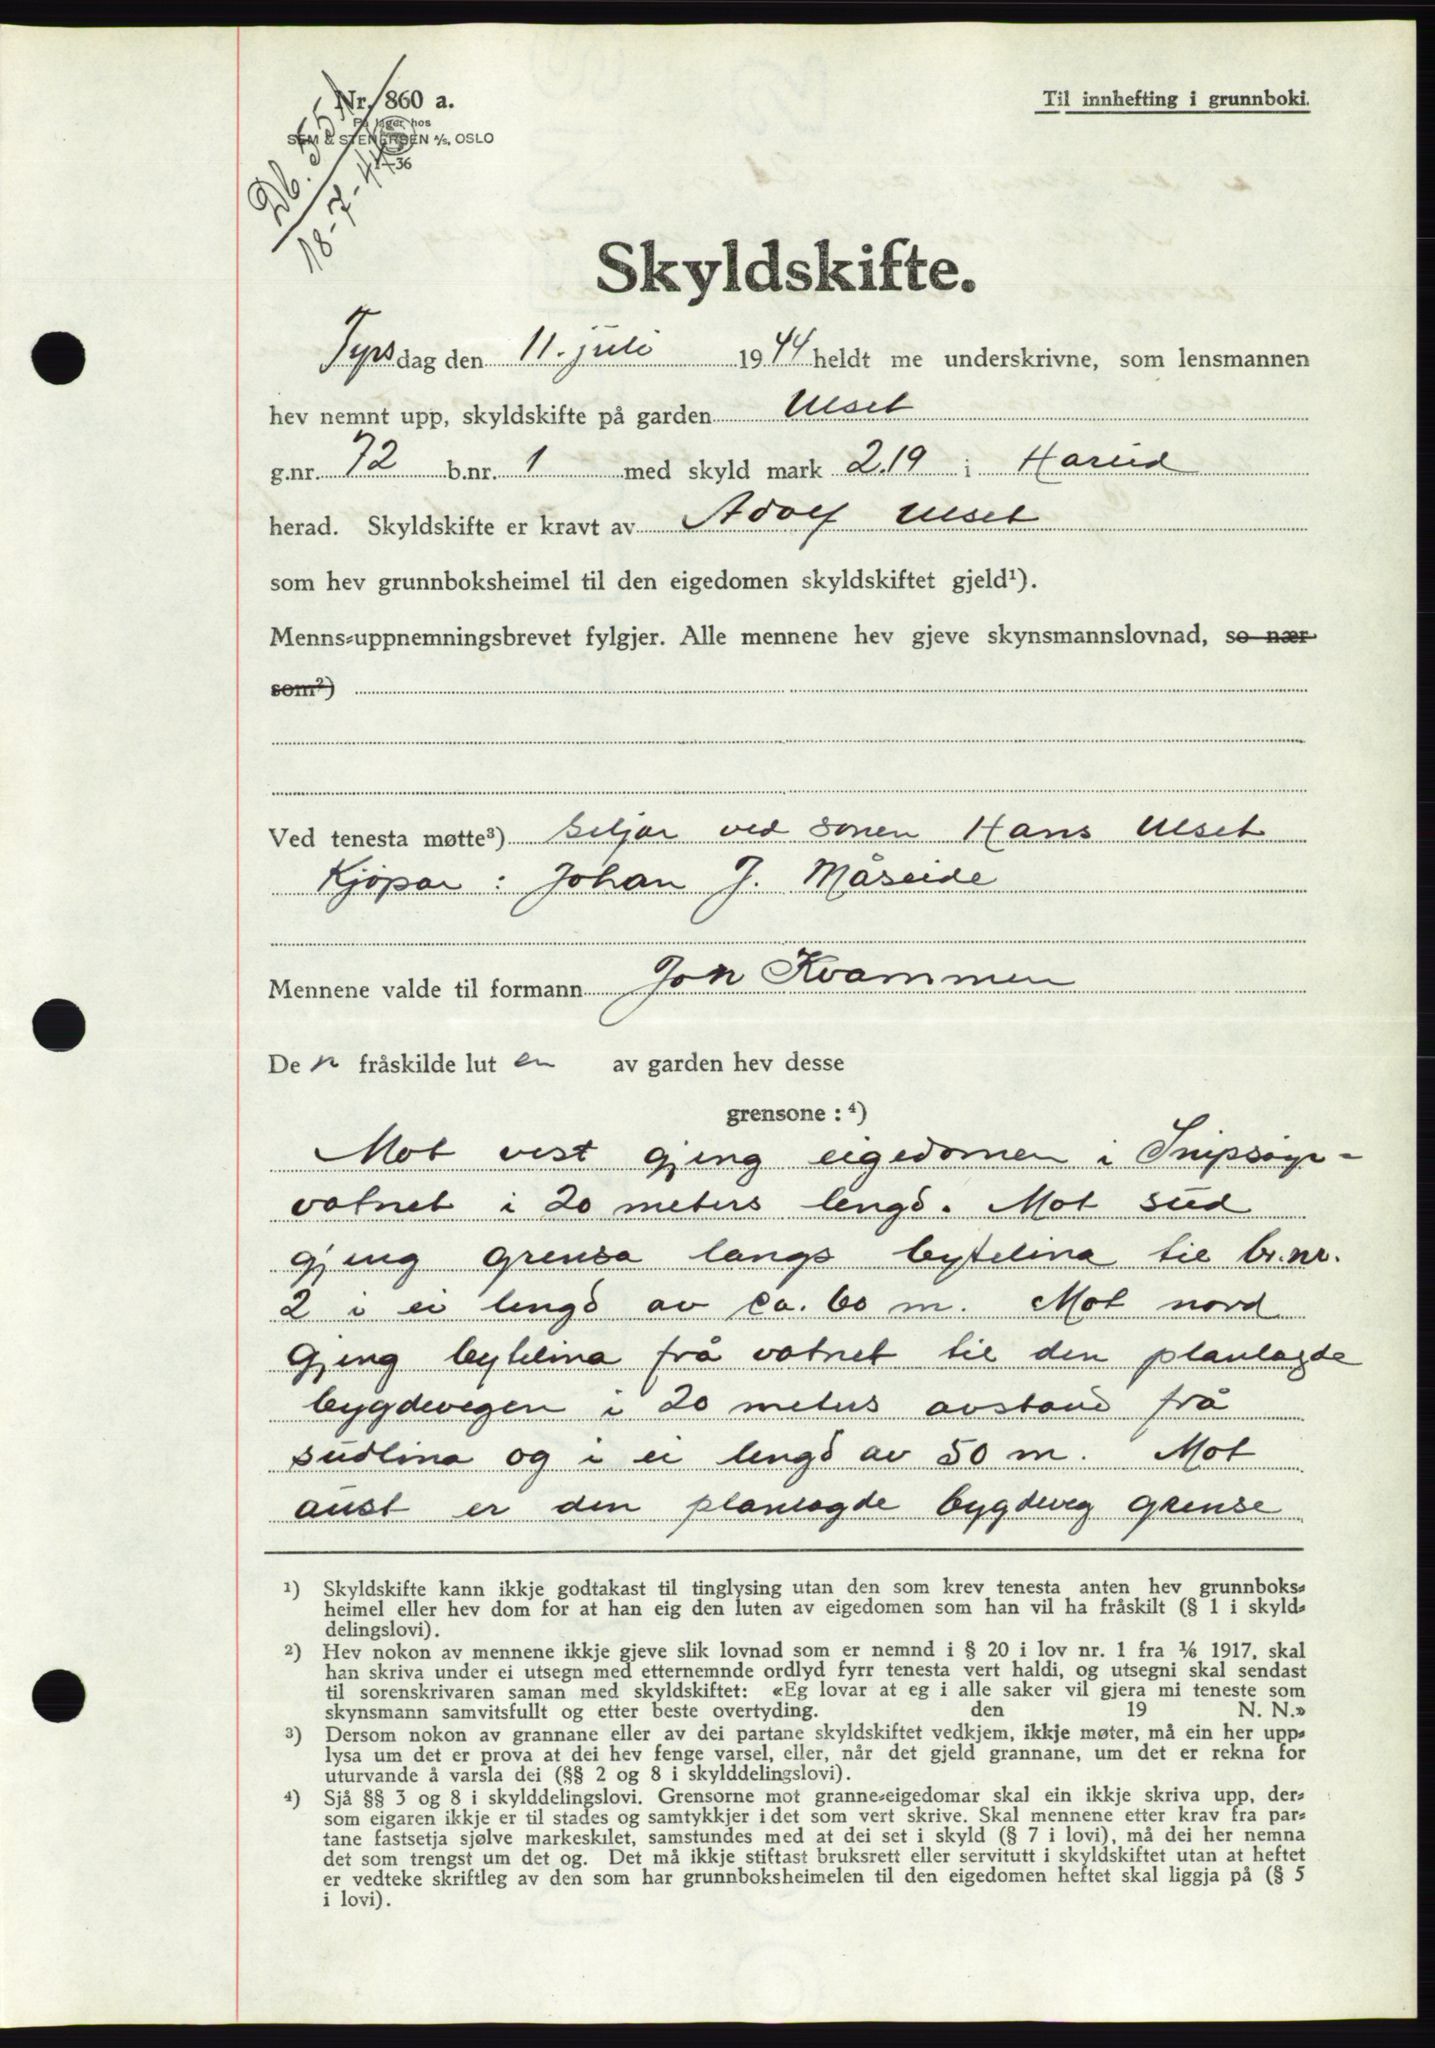 Nr. 860 a.
På lager hos
SEM & STENERSEN A/S, OSLO
1—36
Db. 551
18-7-44
Til innhefting i grunnboki.
Skyldskifte.
Tyrs dag den 11. juli 1944 heldt me underskrivne, som lensmannen
hev nemnt upp, skyldskifte på garden Ulset
g.nr. 72 b.nr. 1 med skyld mark 2.19 i Hareid
herad. Skyldskifte er kravt av Adolf Ulset
som hev grunnboksheimel til den eigedomen skyldskiftet gjeld¹).
Menns-uppnemningsbrevet fylgjer. Alle mennene hev gjeve skynsmannslovnad, so nær
som²)
Ved tenesta møtte³) Seljar ved sonen Hans Ulset
Kjøpar : Johan J. Måseide
Mennene valde til formann Jon Kvammen
De n fråskilde lut en av garden hev desse
grensone : ⁴)
Mot vest gjeng eigedomen i Snipsøyr-
vatnet i 20 meters lengd. Mot sud
gjeng grensa langs bytelina til br.nr.
2 i ei lengd av ca. 60 m. Mot nord
gjeng bytelina frå vatnet til den planlagde
bygdevegen i 20 meters avstand frå
sudlina og i ei lengd av 50 m. Mot
aust er den planlagde bygdeveg grense
¹) Skyldskifte kann ikkje godtakast til tinglysing utan den som krev tenesta anten hev grunnboks-
heimel eller hev dom for at han eig den luten av eigedomen som han vil ha fråskilt (§ 1 i skyld-
delingslovi).
²) Hev nokon av mennene ikkje gjeve slik lovnad som er nemnd i § 20 i lov nr. 1 fra 1/6 1917, skal
han skriva under ei utsegn med etternemnde ordlyd fyrr tenesta vert haldi, og utsegni skal sendast
til sorenskrivaren saman med skyldskiftet: «Eg lovar at eg i alle saker vil gjera mi teneste som
skynsmann samvitsfullt og etter beste overtyding. den 19 N. N.»
³) Dersom nokon av grannane eller av dei partane skyldskiftet vedkjem, ikkje møter, må ein her upp-
lysa um det er prova at dei hev fenge varsel, eller, når det gjeld grannane, um det er rekna for
uturvande å varsla dei (§§ 2 og 8 i skylddelingslovi).
⁴) Sjå §§ 3 og 8 i skylddelingslovi. Grensorne mot granne-eigedomar skal ein ikkje skriva upp, der-
som eigaren ikkje er til stades og samtykkjer i det som vert skrive. Skal mennene etter krav fra par-
tane fastsetja sjølve markeskilet, samstundes med at dei set i skyld (§ 7 i lovi), må dei her nemna
det som trengst um det og. Det må ikkje stiftast bruksrett eller servitutt i skyldskiftet utan at heftet
er vedteke skriftleg av den som har grunnboksheimelen til den eigedomen heftet skal liggja på (§ 5
i lovi).